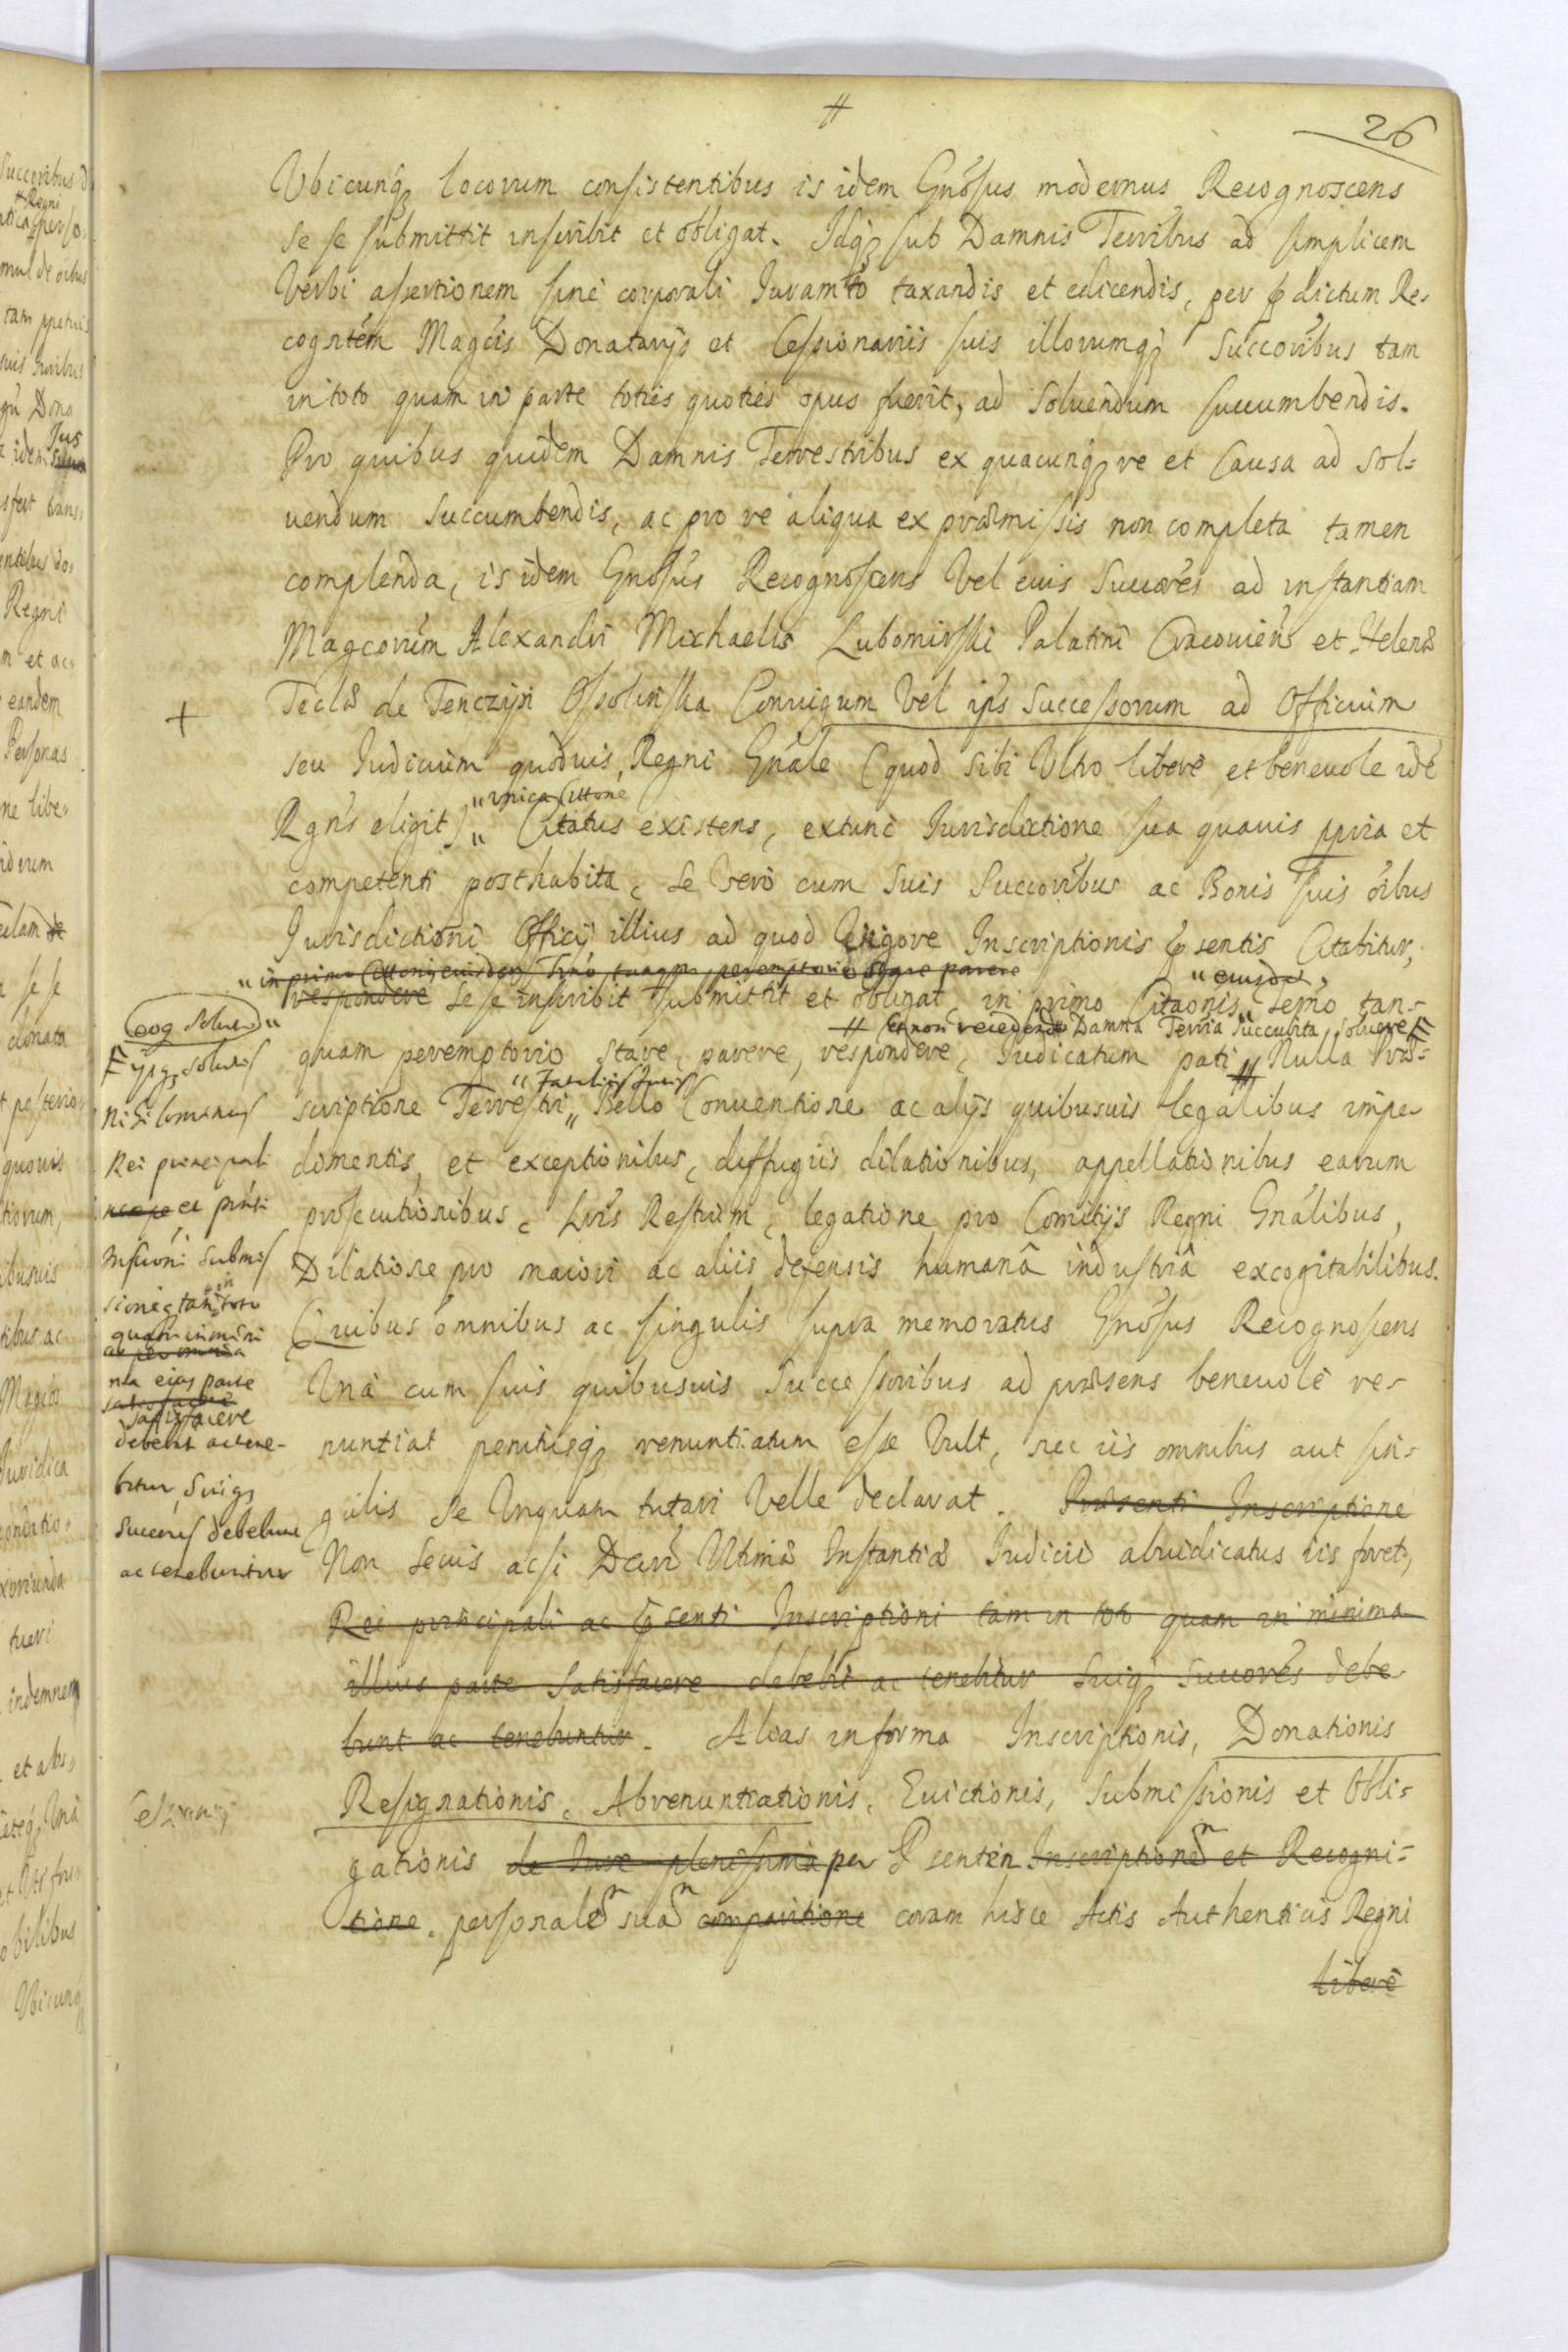 #
26
Ubicunq̃ locorum consistentibus is idem Gnõsus modernus Recognoscens
se se submittit inscribit et obligat. Idq̃ sub Damnis Terribus ad simplicem
Verbi assertionem sine corporali Juramẽto taxandis et edicendis, per p̃dictum Re-
cognten̄ Magcis Donatarijs et Cessionariis suis illorumq̃ Succoribus tam
in toto quam in parte toties quoties opus fuerit, ad Soluendum succumbendis.
Pro quibus quidem Damnis Terrestribus ex quacunq̃ re et Causa ad Sol-
uendum Succumbendis, ac pro re aliqua ex præmissis non completa tamen
complenda, is idem Gnõsus Recognoscens Vel eius Succores ad instantiam
Magcorum Alexandri Michaelis Lubomirski Palatini Cracouien̄s et Helenæ
+ Teclæ de Tenczyn Ossolinska Coniugum Vel ip̃s Successorum ad Officium
seu Judicium quoduis, Regni Gnãle (quod sibi Ultro libere et beneuole idẽ
"unica Cittone
Rgn̄s eligit) " Citatus existens, extunc Jurisdictione sua quauis ppria et
competenti posthabita, se vero cum Suis Succoribus ac Bonis suis oĩbus
Jurisdictioni Officij illius ad quod Vigore Inscriptionis p̃sentis Citabitur,
"in primo Cittonis eiusdem Tno tanqm peremptorio stare parere
" eiusdẽ
respondere sese inscribit submittit et obligat, in primo Citaonis " Termo tan-
# et non recedendo Damna Terria Succubita, soluere F
quam peremptorio stare, parere, respondere, Judicatum pati # Nulla Præ-
" Fatalis Juris
scriptione Terrestri " Bello Conuentione ac alijs quibusuis legalibus impe-
dimentis, et exceptionibus, diffugiis dilationibus, appellationibus earum
prosecutionibus, Lris Restrium, legatione pro Comitijs Regni Gnãlibus,
Dilatione pro maiori ac aliis defensis humanâ industriâ excogitabilibus.
Quibus omnibus ac singulis supra memoratus Gnõsus Recognoscens
Unà cum suis quibusuis Successoribus ad præsens beneuolè re-
nuntiat penitusq̃ renuntiatum esse Vult, nec iis omnibus aut sin-
gulis se Unquam tutari Velle declarat. Præsenti Inscriptione
Non secus acsi Decri Ultimæ Instantiæ Judicii abiudicatus iis foret,
Rei principali ac p̃senti Inscriptioni tam in toto quam in minima
illius parte Satisfacere debebit ac tenebitur Suiq̃ Succores debe-
bunt ac tenebuntur. Alias in forma Inscriptionis, Donationis
Resignationis, Abrenuntiationis, Euictionis, Submissionis et Obli-
gationis de Jure plenissima per P̃senten Inscriptione et Recogni-
tione. personalẽ suã comparitione coram hisce Actis Authenticis Regni
liberè
F ijsq̃ solutis
nihilominus
Rei principali
ac prnti
Inscriõni Submis
sioniq̃ tam in toto
quam in mĩni
ac per omnia
ma eius parte
satisfacere
debebit ac tene-
bitur, Suiq̃
Succores debebunt
ac tenebuntur